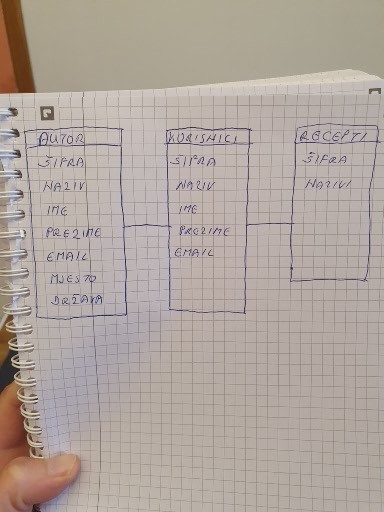 AUTOR
ŠIFRA
NAZIV
IME
PREZIME
EMAIL
MJESTO
DRŽAVA
KORISNICI
ŠIFRA
NAZIV
IME
PREZIME
EMAIL
RECEPTI
ŠIFRA
NAZIVI